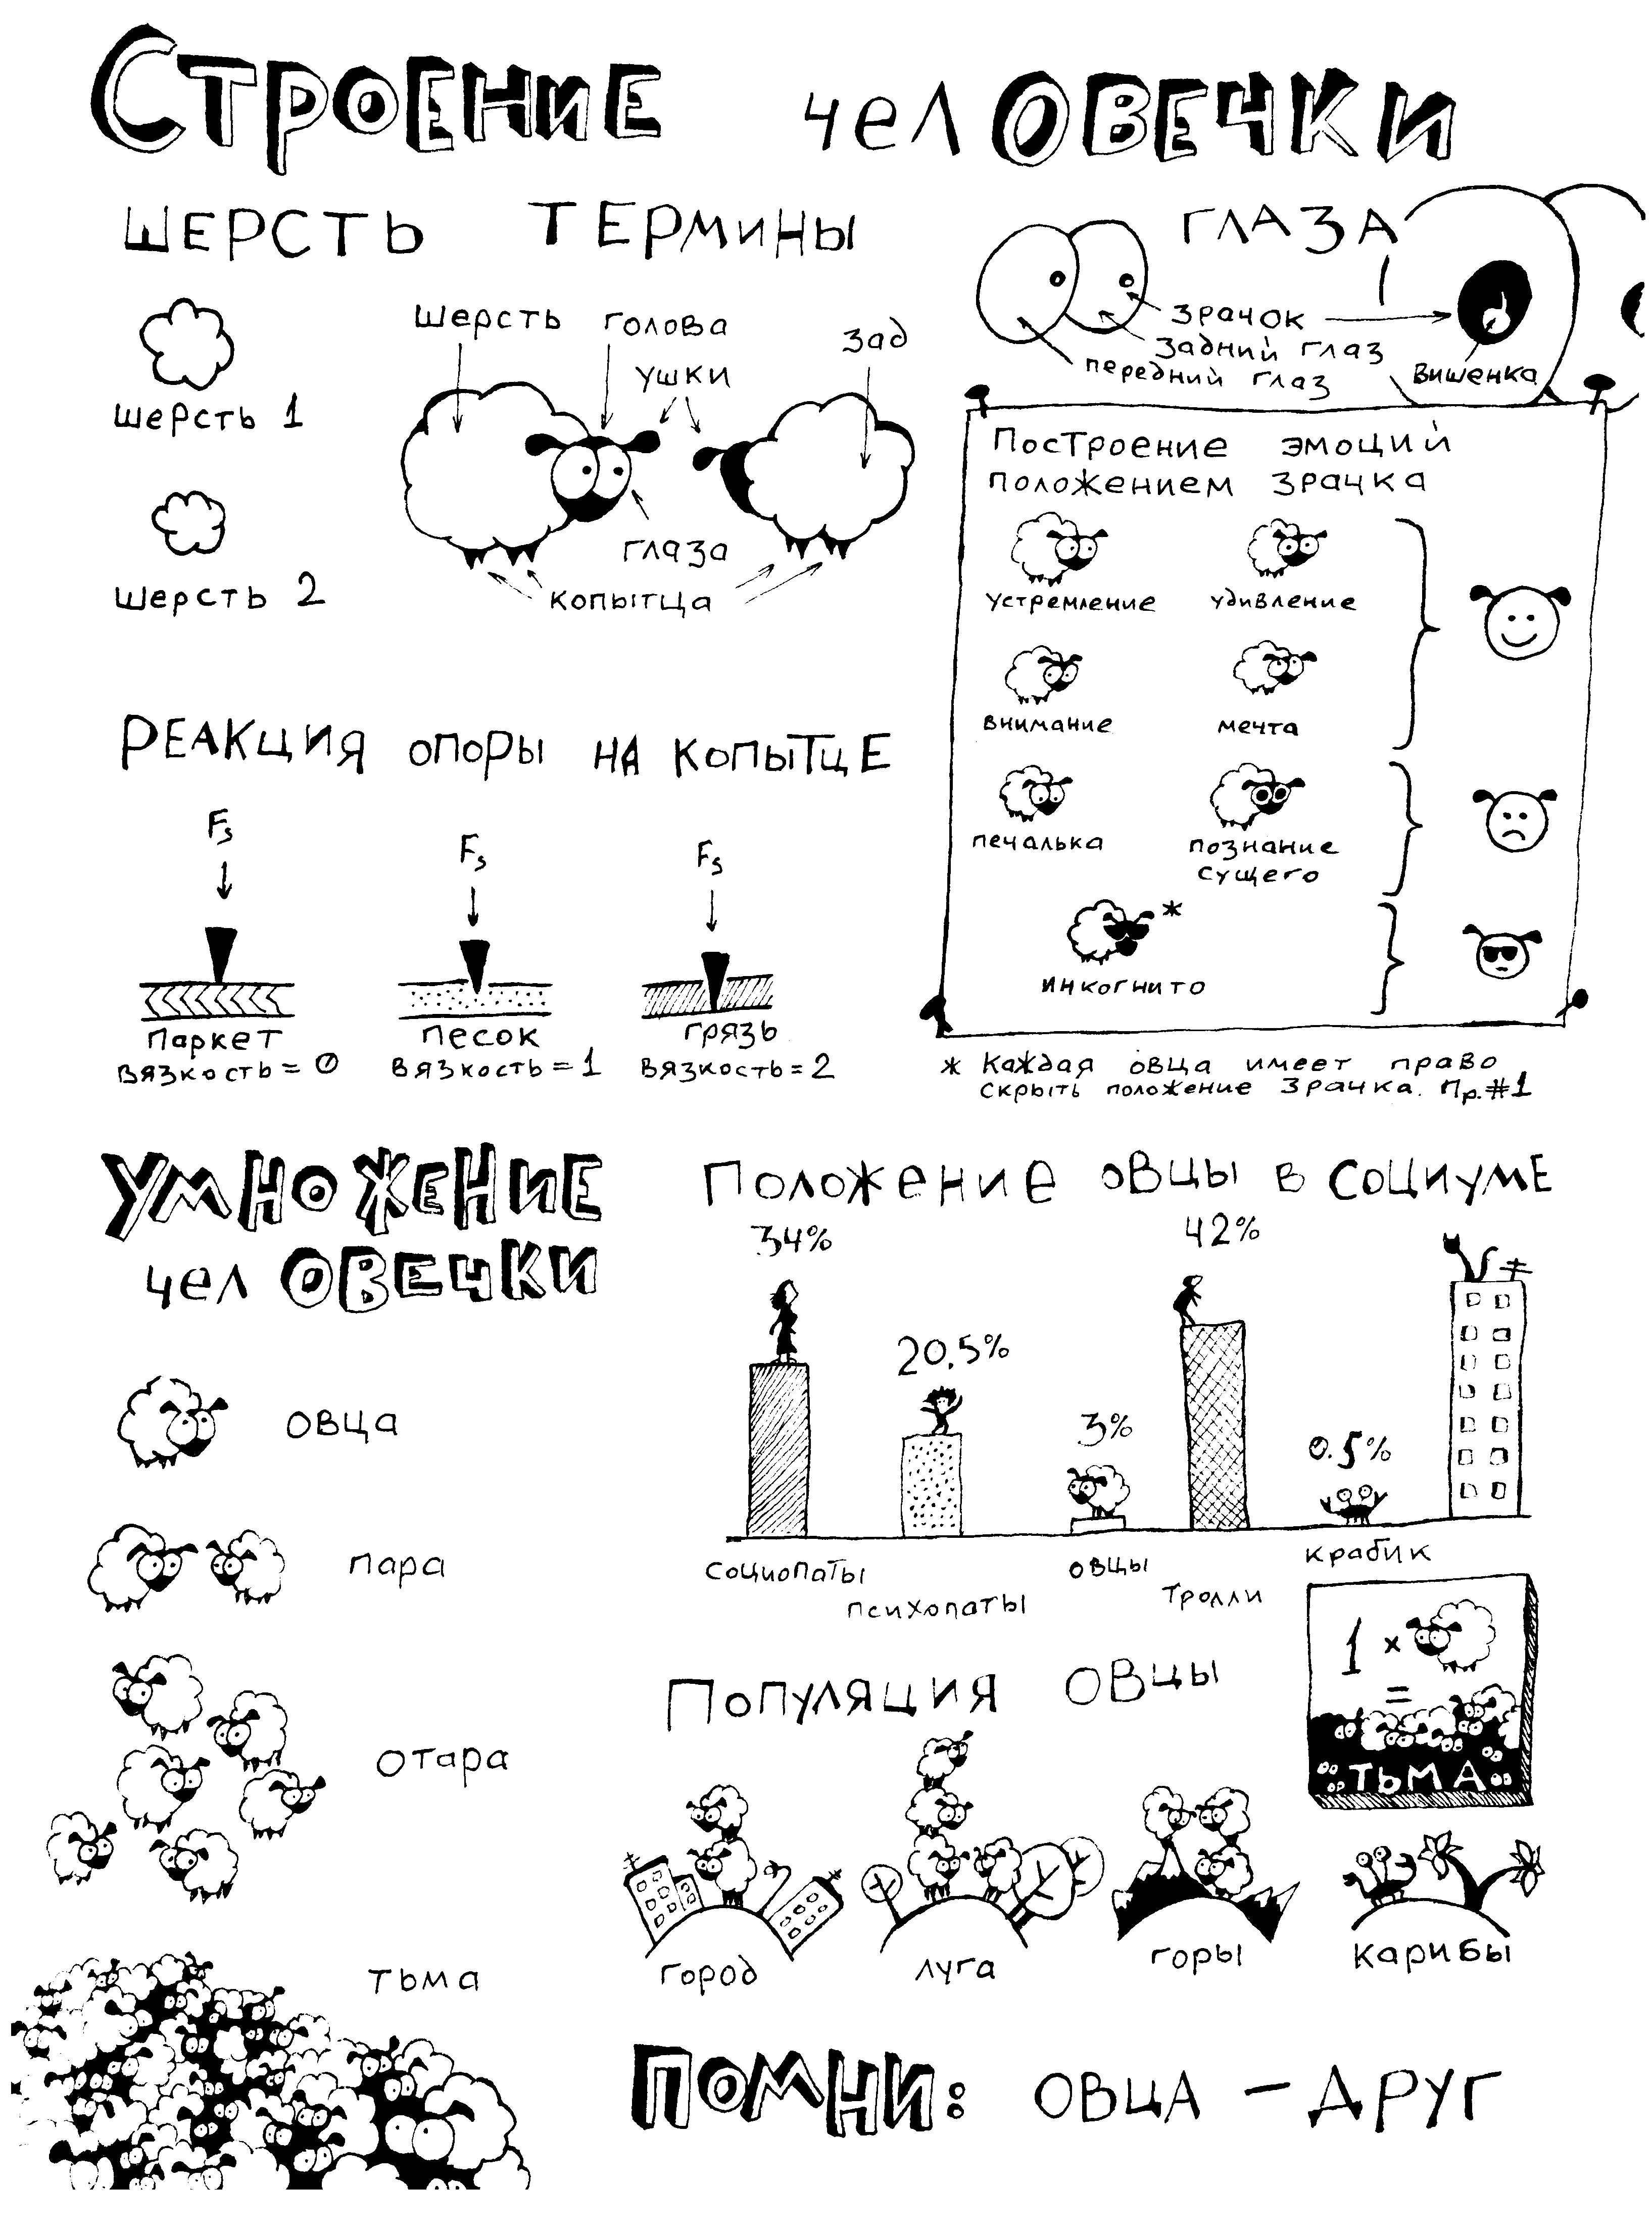 СТРОЕНИЕ челОВЕЧКИ
ШЕРСТЬ
шерсть 1
шерсть 2
ТЕРМИНЫ
шерсть
голова
ушки
зад
глаза
копытца
ГЛАЗА
зрачок
задний глаз
передний глаз
вишенка
Построение эмоций
положением зрачка
устремление
удивление
внимание
мечта
печалька
познание
сущего
*
инкогнито
* Каждая овца имеет право
скрыть положение зрачка. Пр.#1
РЕАКЦИЯ ОПОРЫ НА КОПЫТЦЕ
Fs
Fs
Fs
паркет
вязкость = 0
песок
вязкость = 1
грязь
вязкость = 2
УМНОЖЕНИЕ
челОВЕЧКИ
овца
пара
отара
тьма
Положение овцы в социуме
34%
20.5%
3%
42%
0.5%
социопаты
психопаты
овцы
тролли
крабик
1 ×
=
ТЬМА
Популяция овцы
город
луга
горы
карибы
ПОМНИ: ОВЦА – ДРУГ